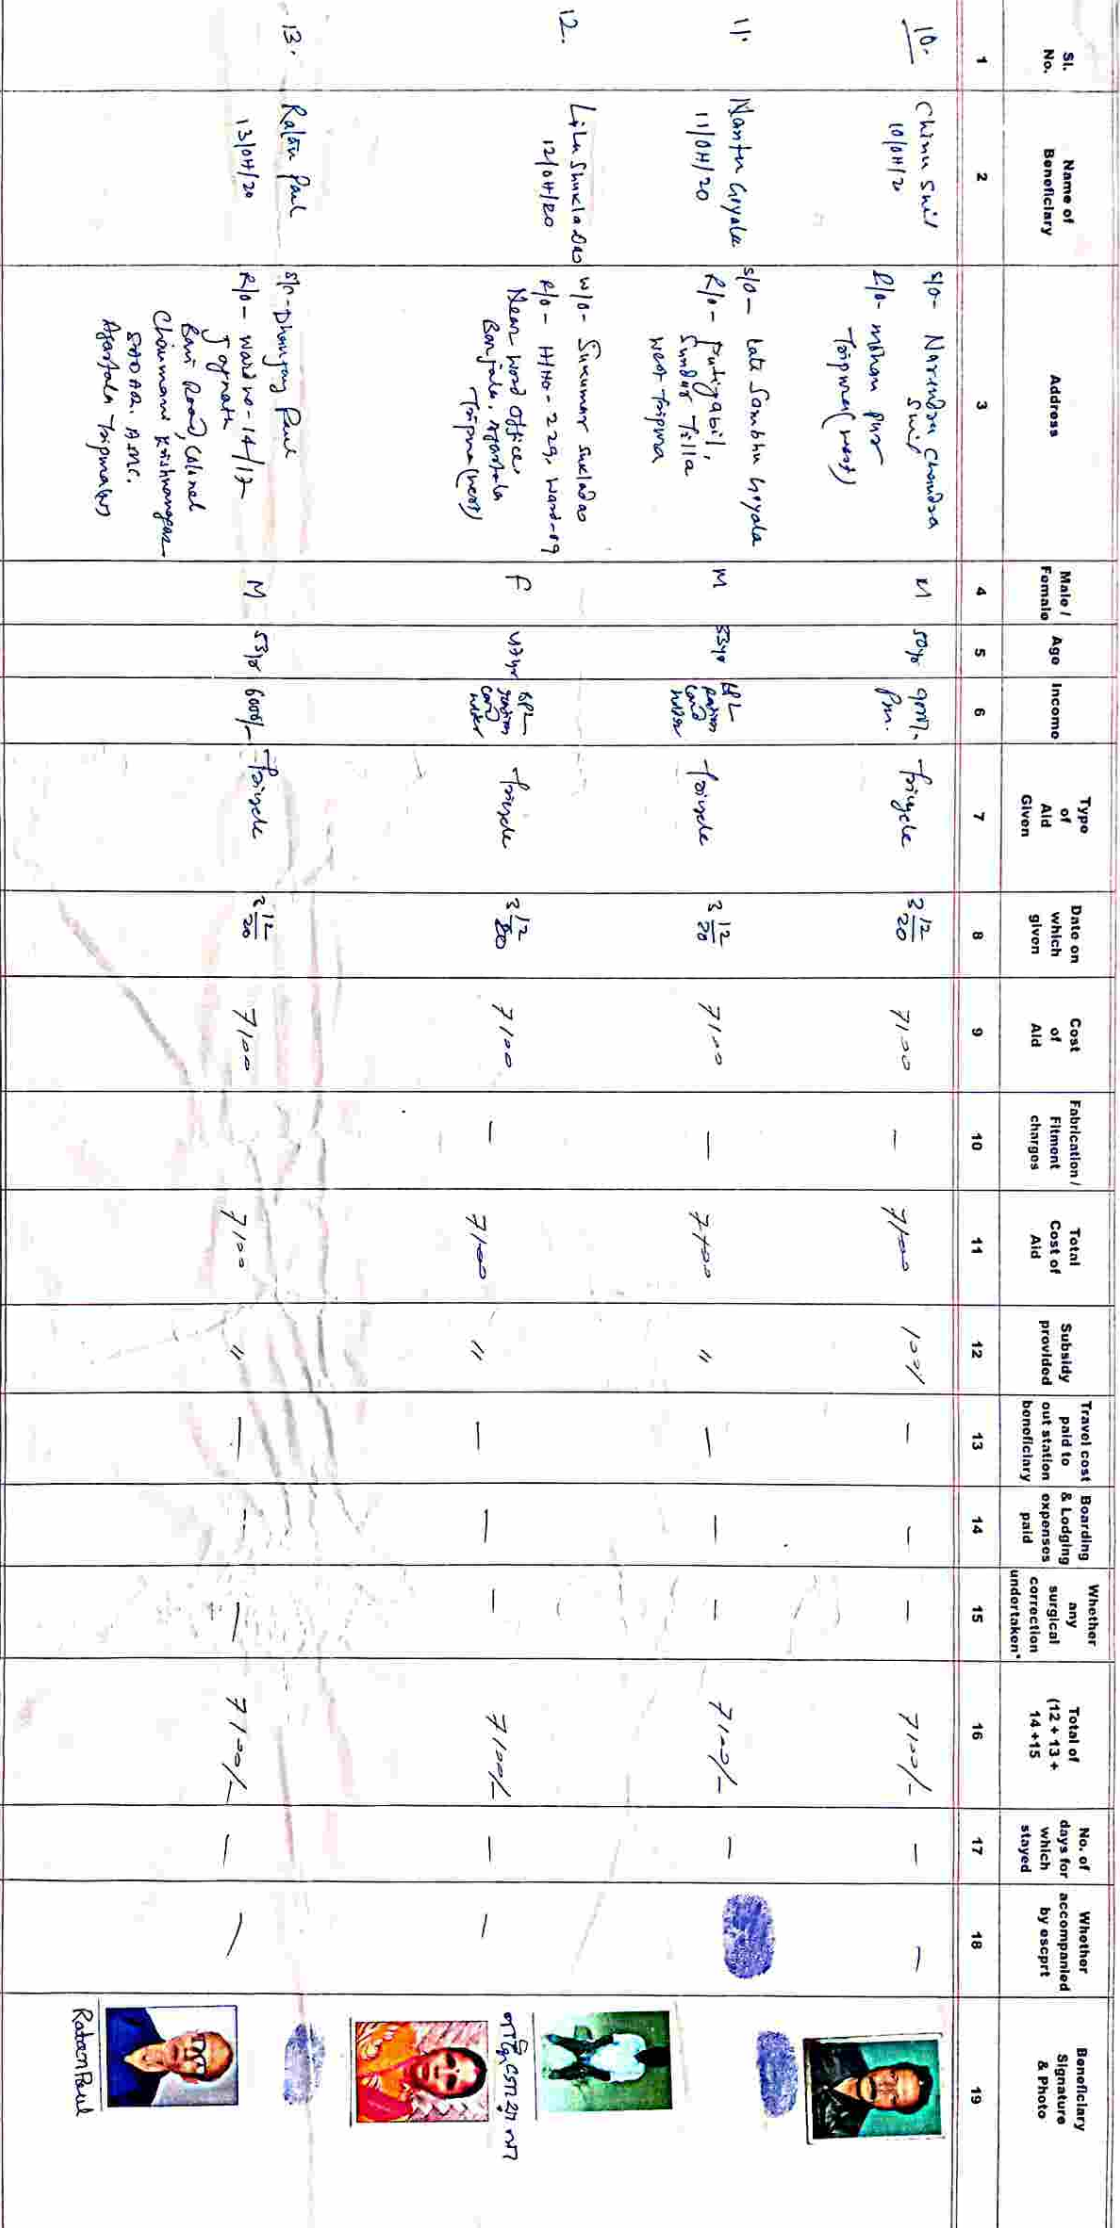 Sl. No.
Name of Beneficiary
Address
Male / Female
Age
Income
Type of Aid Given
Date on which given
Cost of Aid
Fabrication / Fitment charges
Total Cost of Aid
Subsidy provided
Travel cost paid to out station beneficiary
Boarding & Lodging expenses paid
Whether any surgical correction undertaken*
Total of (12 + 13 + 14 +15
No. of days for which stayed
Whether accompanied by escprt
Beneficiary Signature & Photo
1 2 3 4 5 6 7 8 9 10 11 12 13 14 15 16 17 18 19
10.
Chinu Suil
S/o- Narendra Chandra
Suil
R/o- Mohan pur
Tripura (west)
M 50yr
Pm.
Tricycle 3/12/20 7100 — 7100 100% — — — 7100/- — —
11.
Nantu Goyala
11/OH/20
S/o- Late Sambhu Goyala
R/o-
Sundar Tilla
West Tripura
M 33yr
BPL
ration
card
Tricycle 3/12/20 7100 — 7100 " — — — 7100/- —
12.
Lilu Shukla Das
12/OH/20
W/o- Sukumar Sukladas
R/o- H/No- 229, Ward-09
Near Word office,
Agartala
Tripura (west)
F
BPL
ration
card
Tricycle 3/12/20 7100 — 7100 " — — — 7100/- — —
13.
Ratan Paul
13/OH/20
S/o- Dhananjoy Paul
R/o- Ward no-14/17
Jognath
Bari Road, Colonel
Chowmani Krishnanagar
SADAR. A.M.C.
Agartala Tripura(w)
M 53yr 6000/-
Tricycle 3/12/20 7100 7100 " — — — 7100/- — —
Ratan Paul